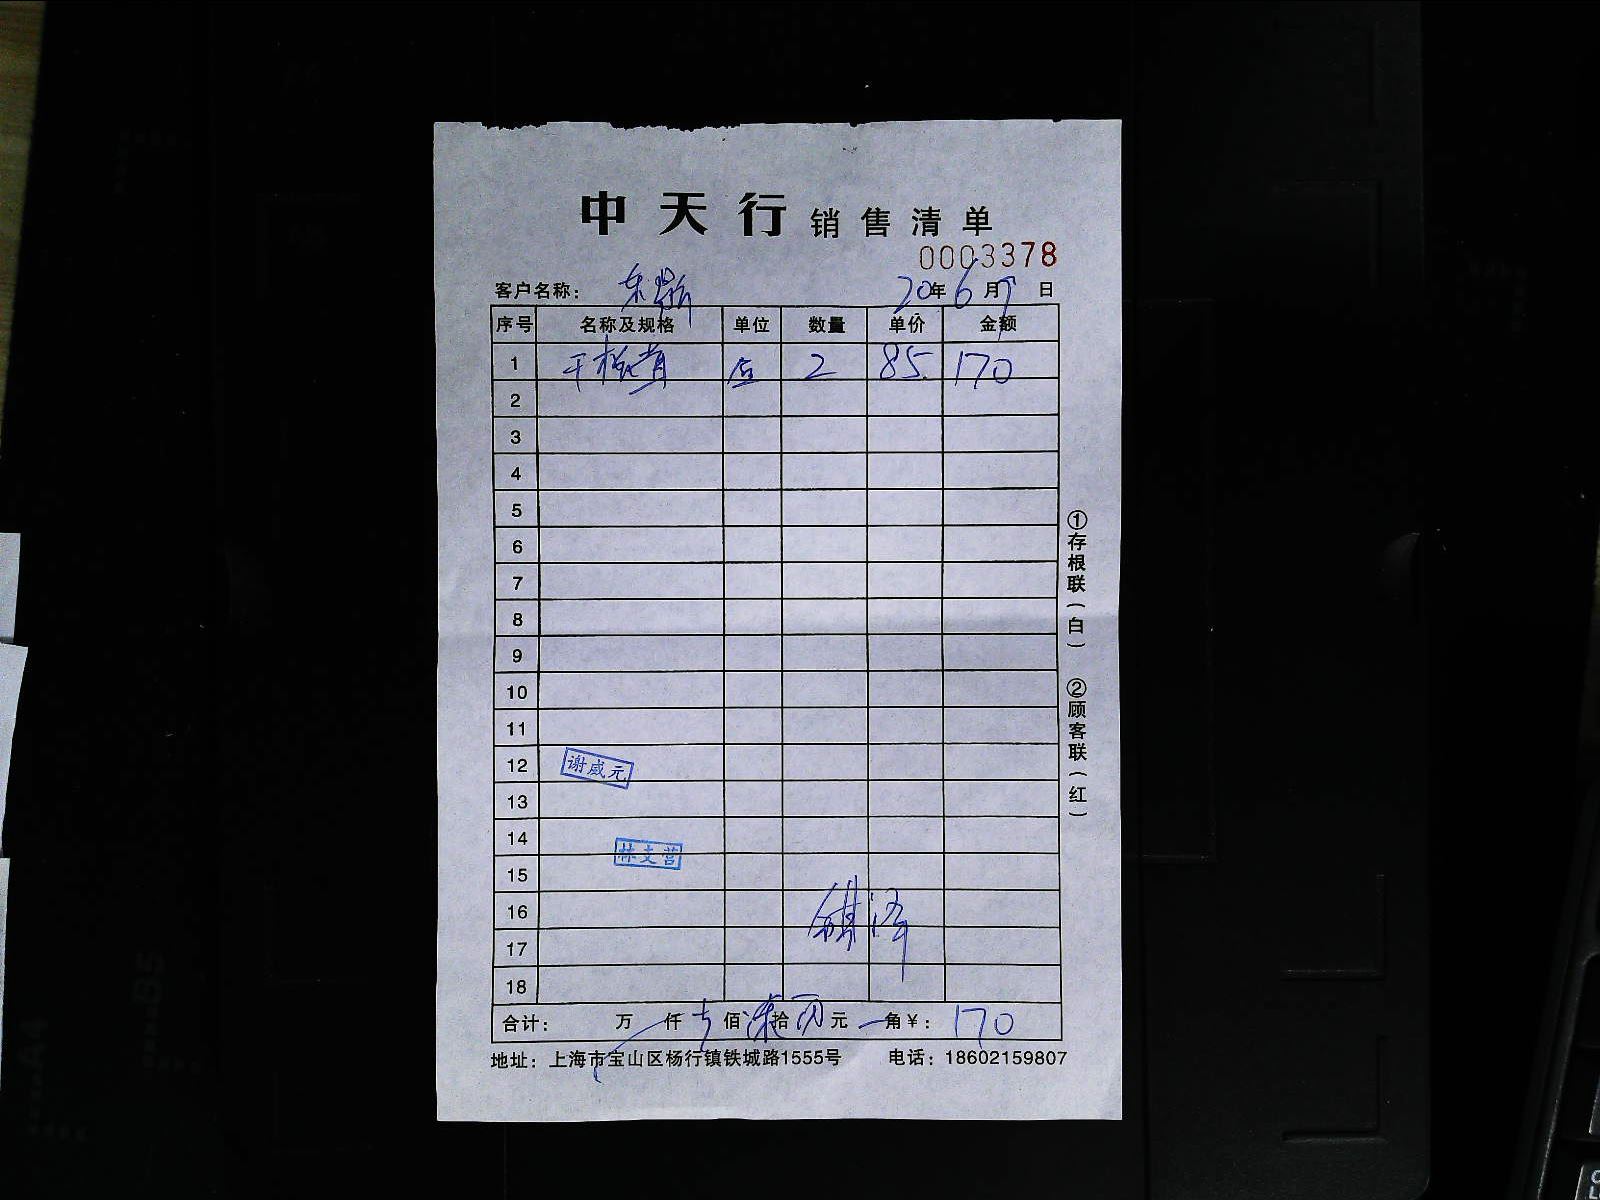 中天行 销售清单
0003378
客户名称： 20年6月 日
序号 名称及规格 单位 数量 单价 金额
1 2 85 170
2
3
4
5
6
7
8
9
10
11
12 谢威元
13
14
林支营
15
16
17
18
合计： 万 仟 佰 拾 元 角¥：170
地址：上海市宝山区杨行镇铁城路1555号 电话：18602159807
①存根联（白） ②顾客联（红）